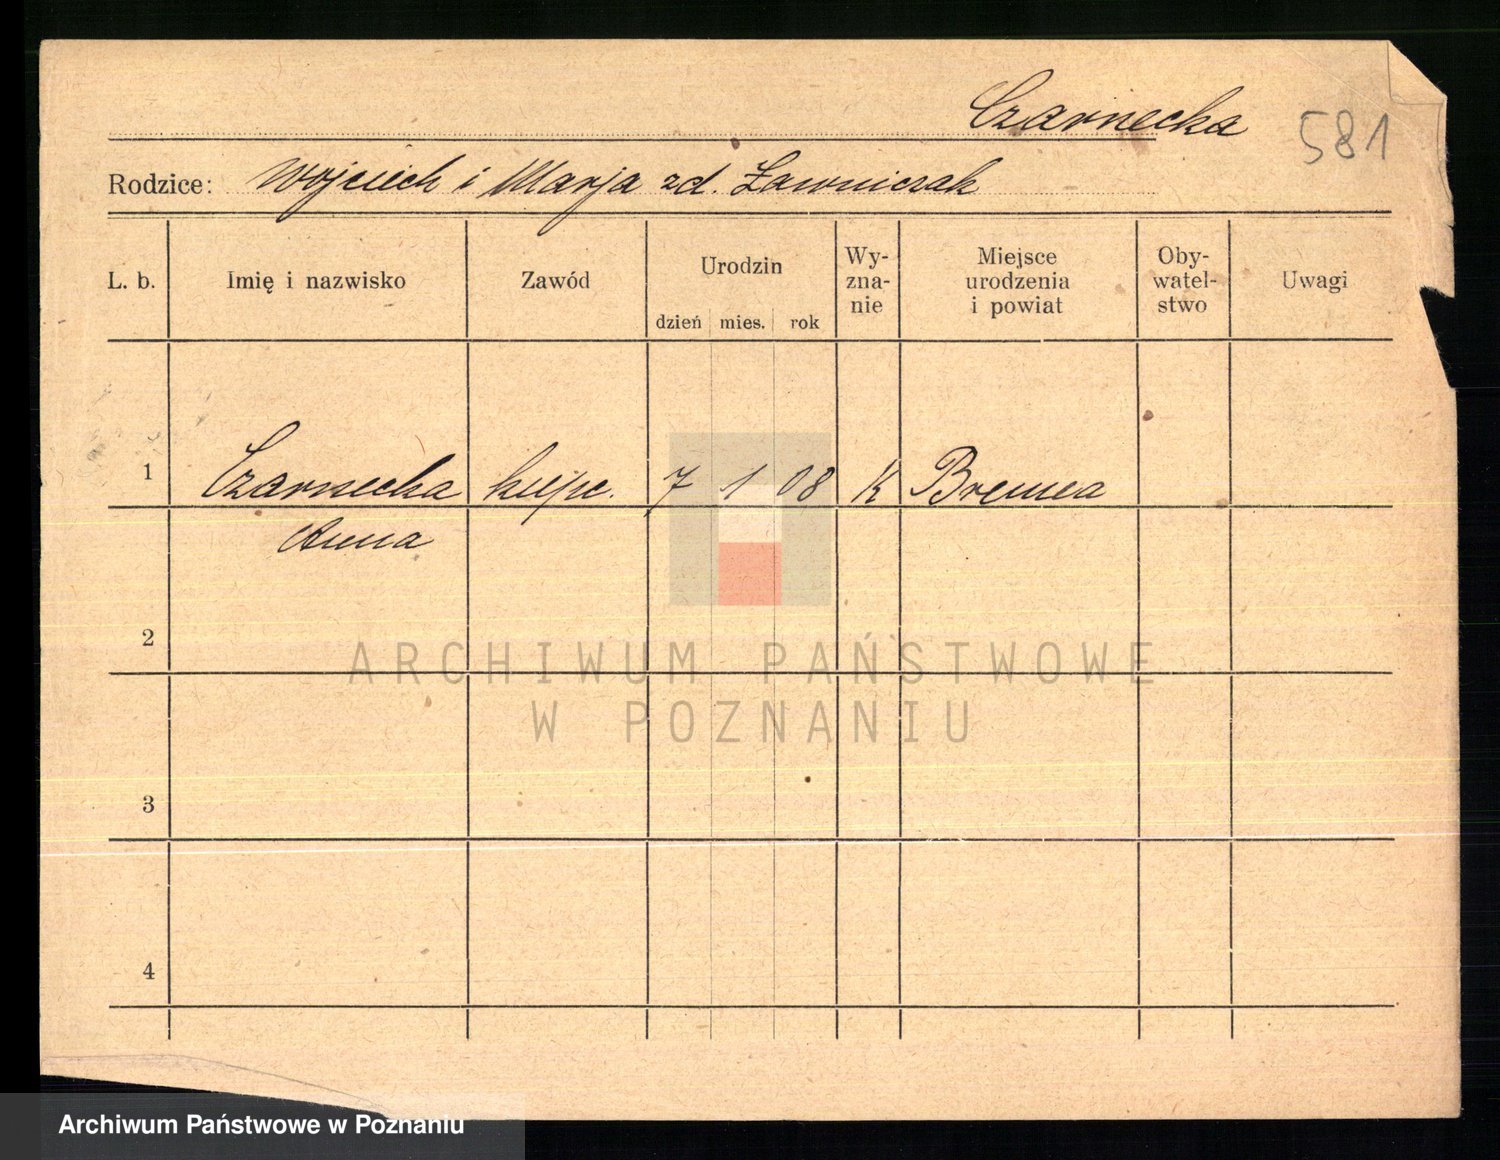 Czarnecka
581
Rodzice: Wojciech i Marja zd. Ławniczak
L. b.
Imię i nazwisko
Zawód
Urodzin
dzień mies. rok
Wy-
zna-
nie
Miejsce
urodzenia
i powiat
Oby-
watel-
stwo
Uwagi
1 Czarnecka kupc. 7 1 08 K Bremea
Anna
2
3
4
ARCHIWUM PAŃSTWOWE
W POZNANIU
Archiwum Państwowe w Poznaniu